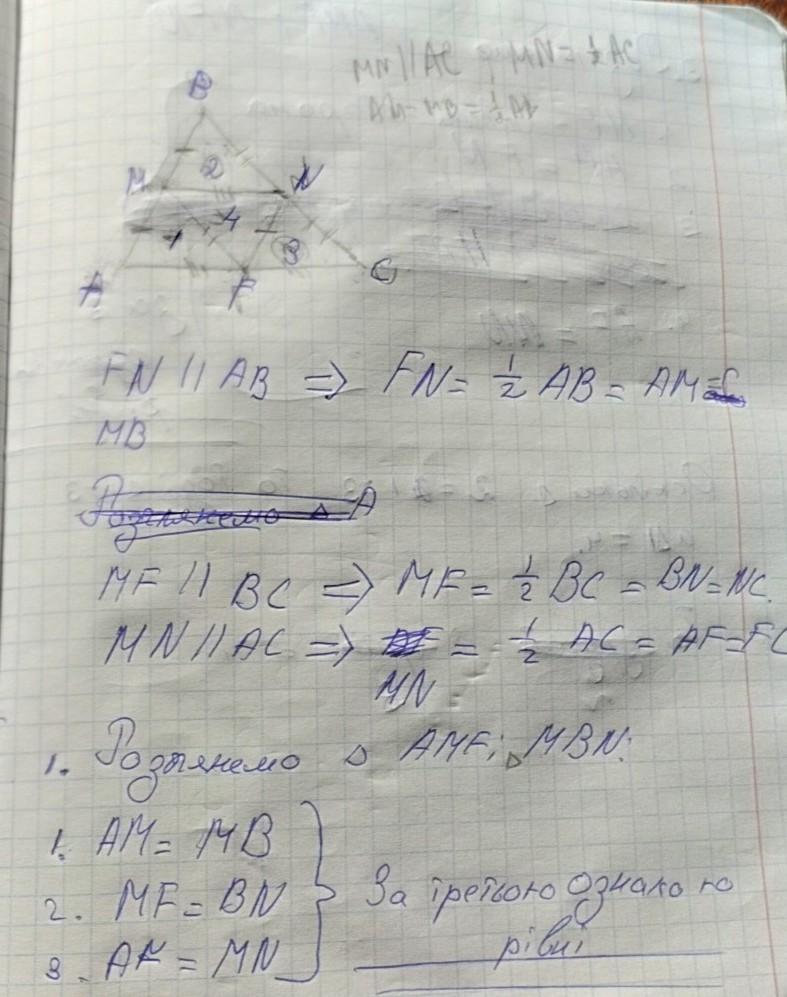 MN || AC, MN = 1/2 AC
AM = MB = 1/2 AB
B
M 2 N
1 4 3
A F C
FN || AB ⇒ FN = 1/2 AB = AM =
MB
Розглянемо △ A
MF || BC ⇒ MF = 1/2 BC = BN = NC.
MN || AC ⇒ = 1/2 AC = AF = FC
MN
1. Розглянемо △ AMF; △ MBN:
1. AM = MB
2. MF = BN
3. AF = MN
За третьою ознакою
рівні